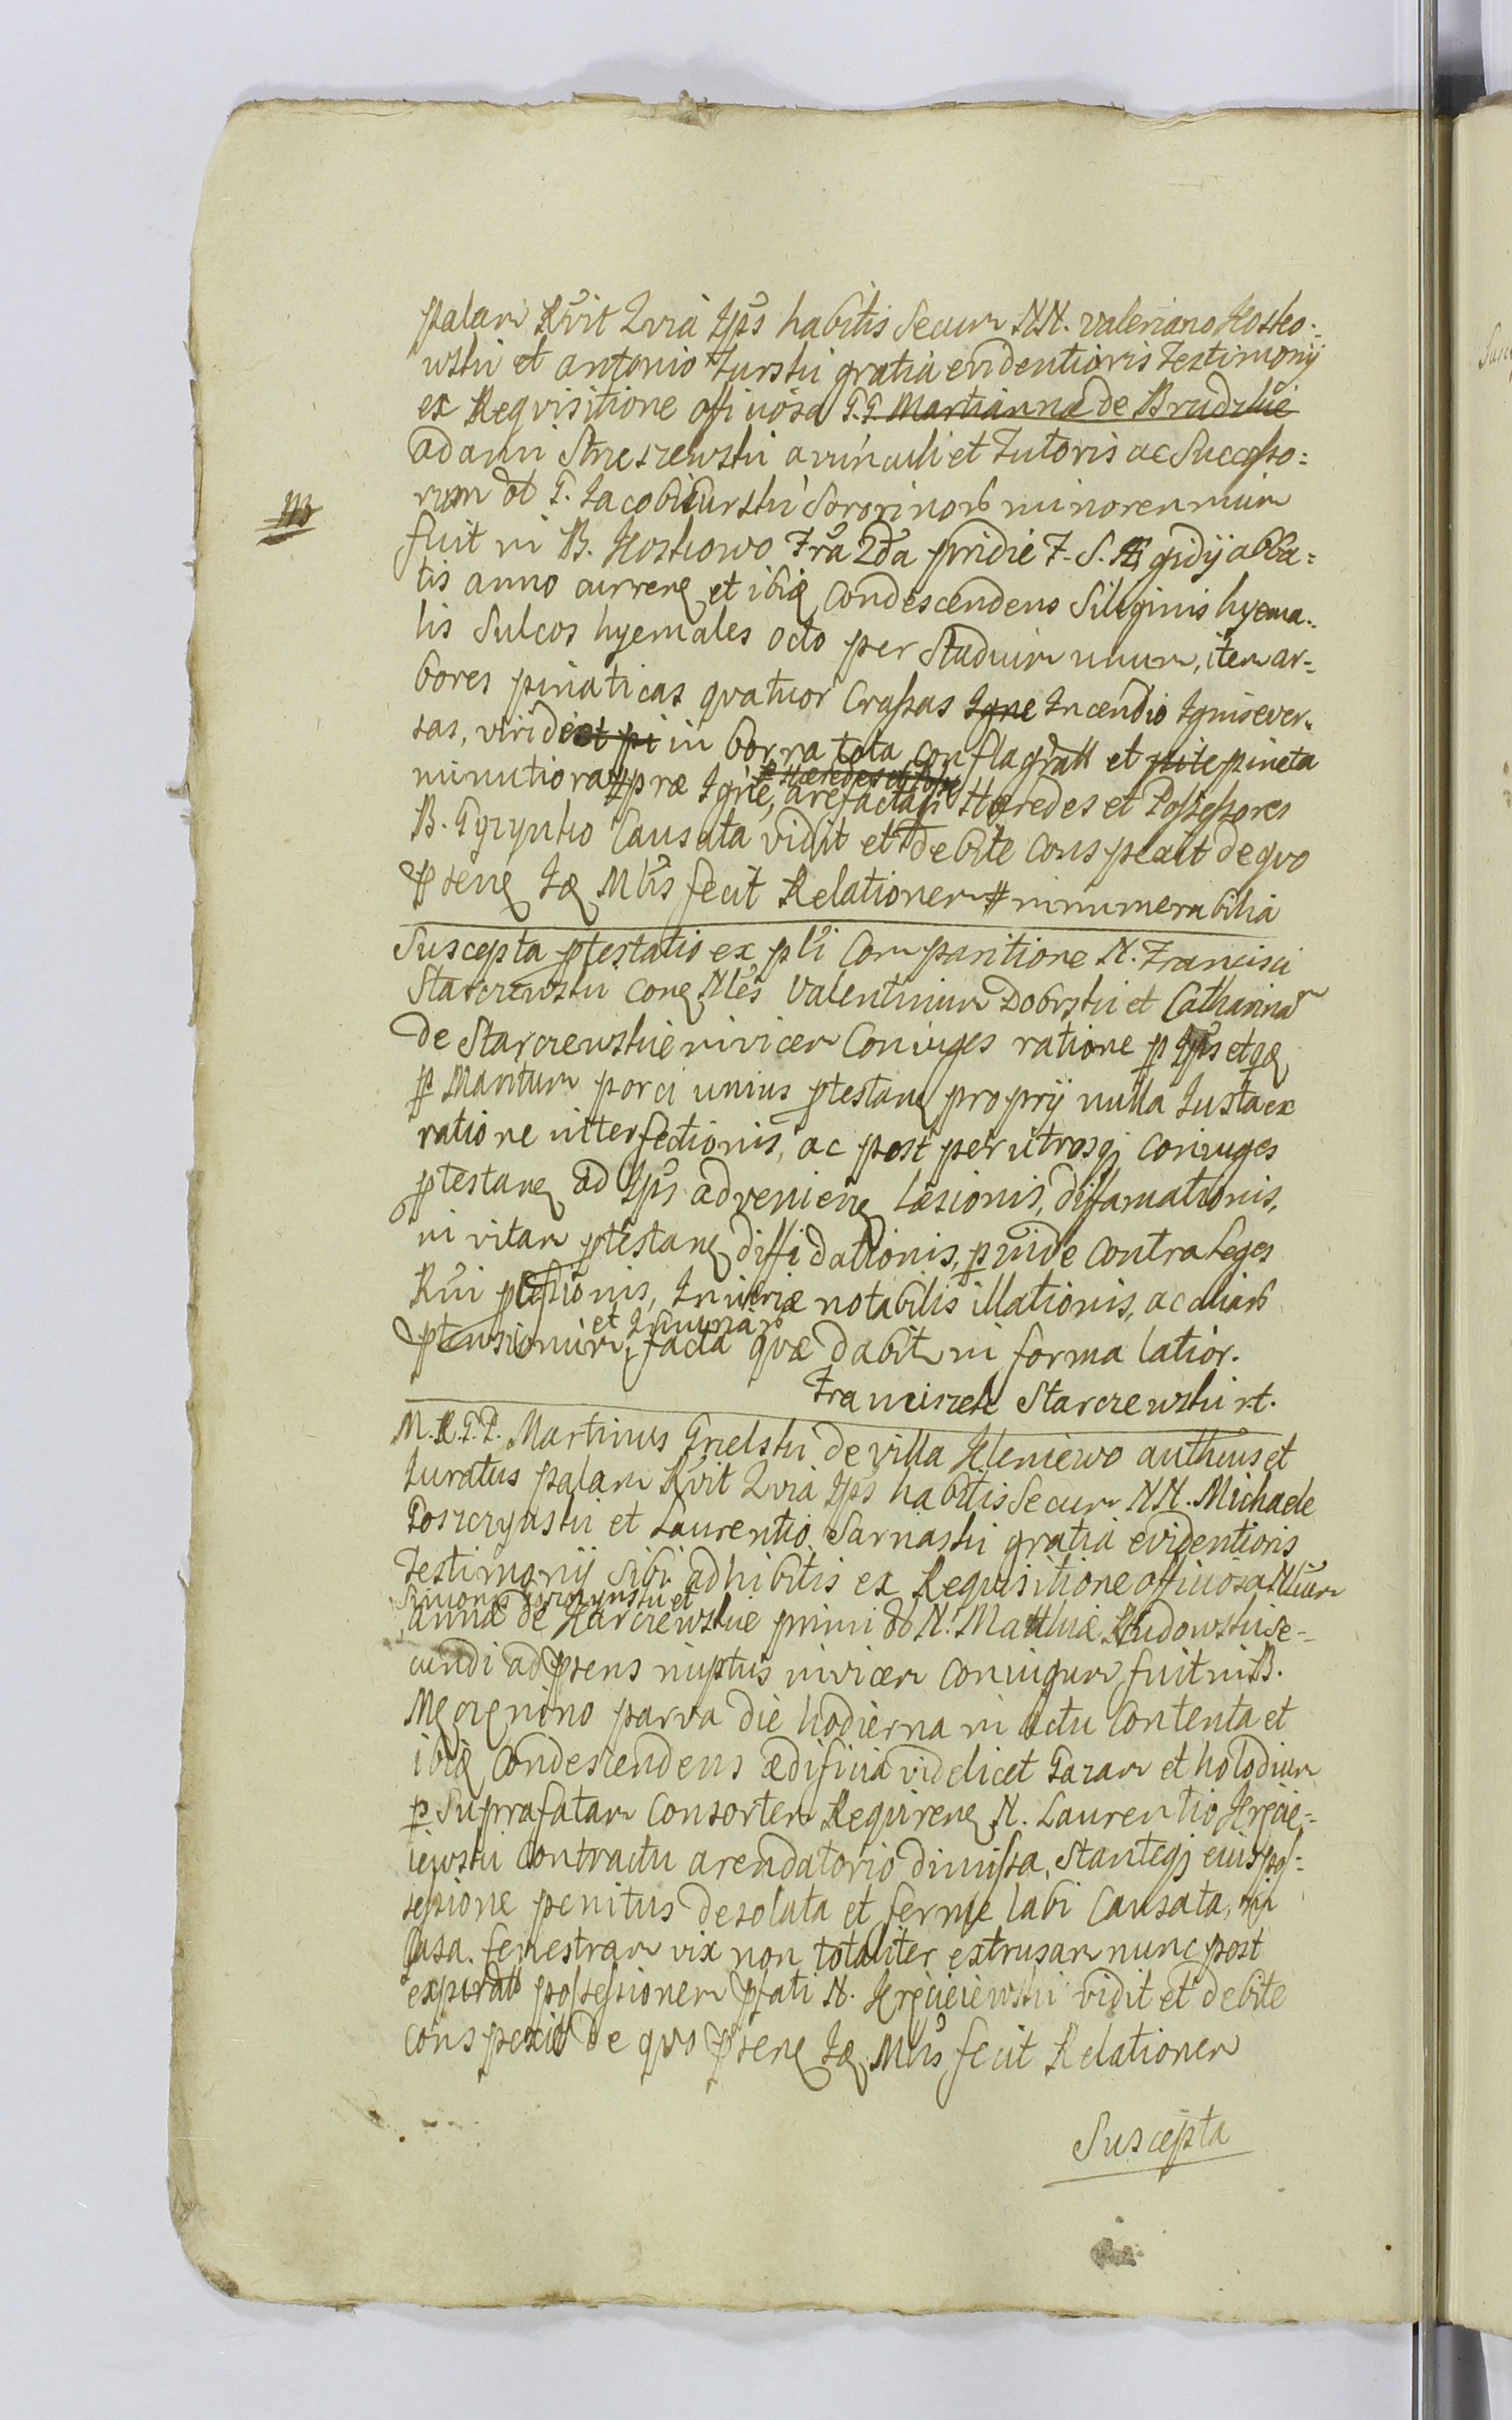 palam Rvit Qvia Ips habitis Secum NN. Valeriano Kosko:
wski et Antonio Turski gratia evidentioris Testimonij
ex Reqvisitione officiosa G.G. Martiannæ de Brudzkie
Adami Strzeszewski avunculi et Tutoris ac Successo:
rum ol G. Jacobi Turski Sororinorb minorennium
fuit in B. Koskowo Fra 2da pridie F. S. Ægidij abba:
tis anno curren et ibiq Condescendens Siliginis hyema:
lis Sulcos hyemales octo per Stadium unum, item ar:
bores piniaticas qvatuor Crassas Igne Incendio Ignis ever:
sas, viride et pi in borra tota conflagratt et pite pineta
minutiora # præ Igne, arefacta p Hæredes et Possessores
B. Gyzynko Causata vidit et debite conspexit de qvo
psens Iæ Mtis fecit Relationem # innumerabilia
Suscepta ptestatio ex pli Comparitione N. Francisci
Starczewski Con Nles Valentinum Dobrski et Catharinam
de Starczewskie invicem Coniuges ratione p Ips et qd
p Maritum porci unius ptestan proprij nulla Iusta ex
ratione interfectionis, ac post per utrosq Coniuges
ptestan ad Ips advenien Læsionis, diffamationis,
in vitam ptestan diffidationis, pinde contra Leges
Rni plessionis, Iniuriæ notabilis illationis, ac aliarb
et Iniuriarb
ptensionum, facta qvæ dabit in forma latior.
Franciszek Starczewski rt.
M.R.G.P. Martinus Grzelski de villa Kleniewo authcus et
Iuratus palam Rvit Qvia Ips habitis Secum NN. Michaele
Poszczynski et Laurentio Sarnaski gratia evidentioris
Testimonij Sibi adhibitis ex Requisitione officiosa Nlium
Simonis et
Annæ de Karczewskie primi ol N. Matthiæ Rudowski Se:
cundi ad psens nuptus invicem Coniugum fuit in B.
parva die hodierna in actu Contenta et
ibiq Condescendens ædificia videlicet Gazam et holodium
p Suprafatam Consortem Requiren N. Laurentio
iewski Contractu arendatorio dimissa, Stanteq eius pos:
sessione penitus desolata et ferme labi Causata, in
Casa fenestram vix non totaliter extrusam nunc post
expiratt possessionem pfati N. vidit et debite
conspexit de quo psens Iæ Mtis fecit Relationem
Suscepta